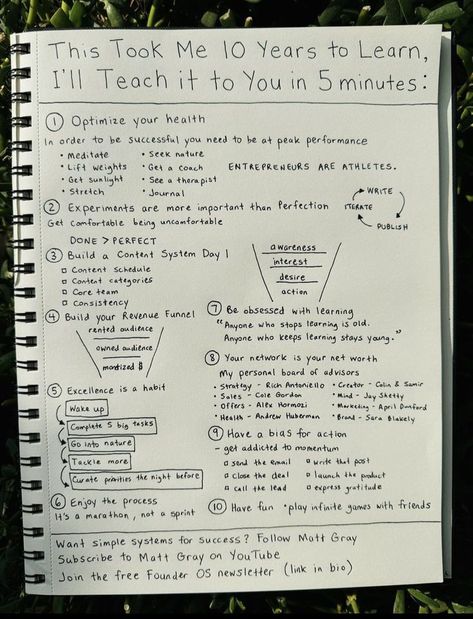 This Took Me 10 Years to Learn,
I'll Teach it to You in 5 minutes:
1 Optimize your health
In order to be successful you need to be at peak performance
• Meditate
• Lift weights
• Get sunlight
• Stretch
• Seek nature
• Get a coach
• See a therapist
• Journal
ENTREPRENEURS ARE ATHLETES.
2 Experiments are more important than Perfection
Get comfortable being uncomfortable
DONE > PERFECT
WRITE
ITERATE
PUBLISH
3 Build a Content System Day 1
□ Content Schedule
□ Content categories
□ Core team
□ Consistency
awareness
interest
desire
action
4 Build your Revenue Funnel
rented audience
owned audience
montized $
5 Excellence is a habit
Wake up
Complete 5 big tasks
Go into nature
Tackle more
Curate priorities the night before
6 Enjoy the process
It's a marathon, not a sprint
7 Be obsessed with learning
"Anyone who stops learning is old.
Anyone who keeps learning stays young."
8 Your network is your net worth
My personal board of advisors
• Strategy - Rich Antoniello
• Sales - Cole Gordon
• Offers - Alex Hormozi
• Health - Andrew Huberman
• Creator - Colin & Samir
• Mind - Jay Shetty
• Marketing - April Dunford
• Brand - Sara Blakely
9 Have a bias for action
- get addicted to momentum
□ send the email
□ close the deal
□ call the lead
□ write that post
□ launch the product
□ express gratitude
10 Have fun • play infinite games with friends
Want simple systems for success? Follow Matt Gray
Subscribe to Matt Gray on YouTube
Join the free Founder OS newsletter (link in bio)